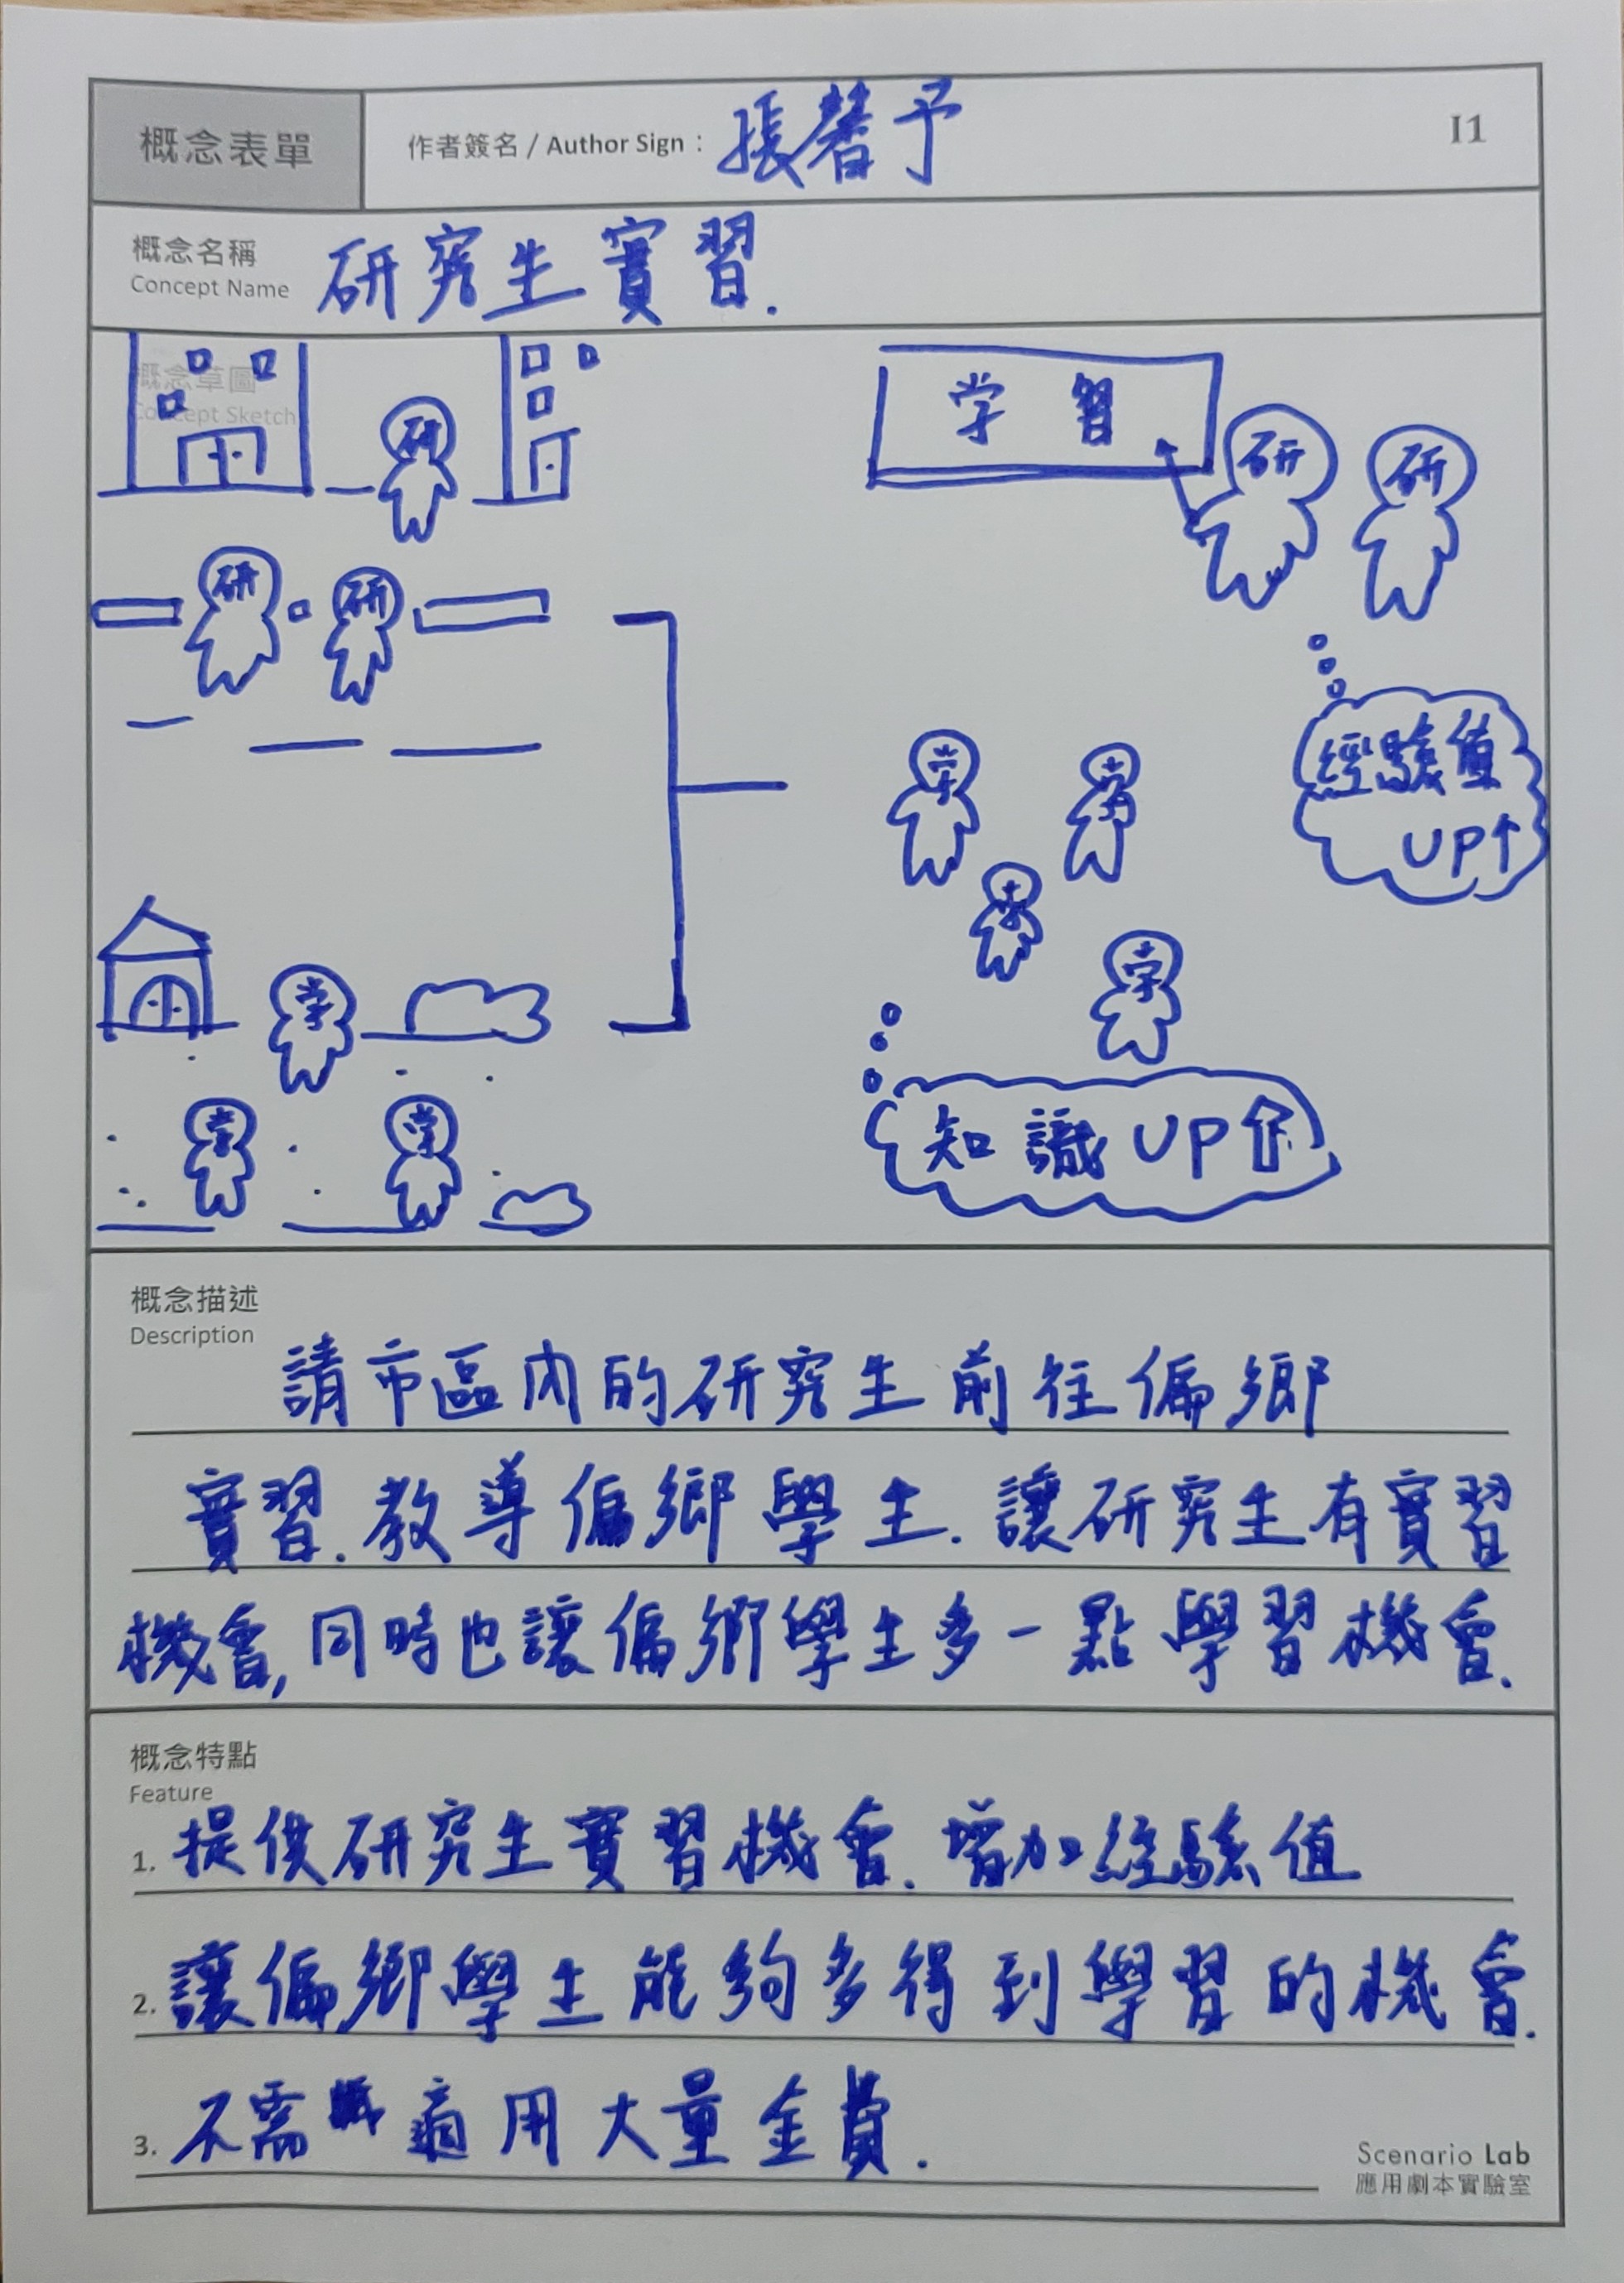 概念表單
作者簽名 / Author Sign : 張馨予
I1
概念名稱
Concept Name
研究生實習.
概念草圖
Concept Sketch
研
学 習
研
研
研
研
経驗值
UP↑
学
学
学
学
学
学
学
知識UP
概念描述
Description
請市區內的研究生前往偏鄉
實習.教導偏鄉學生.讓研究生有實習
機會,同時也讓偏鄉學生多一點學習機會.
概念特點
Feature
1. 提供研究生實習機會.增加經驗值
2. 讓偏鄉學生能夠多得到學習的機會.
3. 不需 適用大量金費.
Scenario Lab
應用劇本實驗室